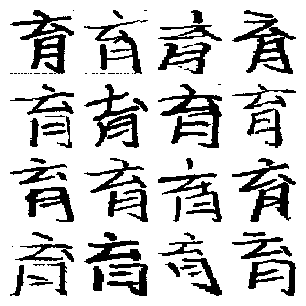 育育育育
育育育育
育育育育
育育育育